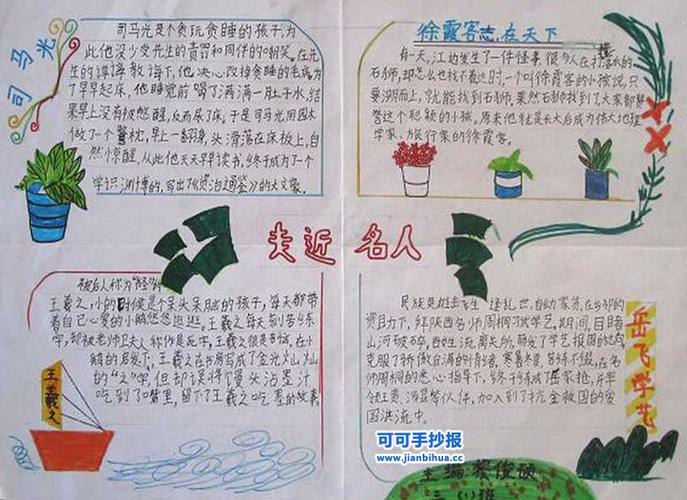 司马光
司马光是个贪玩贪睡的孩子,为
此他没少受先生的责罚和同伴的嘲笑。在先
生的谆谆教诲下,他决心改掉贪睡的毛病,为
了早早起床,他睡觉前喝了满满一肚子水,结
果早上没有被憋醒,反而尿了床,于是司马光用圆木
做了一个警枕,早上一翻身,头滑落在床板上,自
然惊醒,从此他天天早读书,终于成为了一个
学识渊博的,写出《资治通鉴》的大文豪。
徐霞客志在天下
有一天,江边发生了一件怪事,很多人在打落水的
石狮,却怎么也找不着,这时,一个叫徐霞客的小孩说,只
要溯而上,就能找到石狮,果然石狮找到了,大家都赞
誉这个聪颖的小孩,原来他就是长大后成为伟大地理
学家、旅行家的徐霞客。
走近名人
王羲之,小的时候是个呆头呆脑的孩子,每天都带
着自己心爱的小鹅悠悠逛逛。王羲之每天刻苦练
字,却被老师卫夫人称作是死字,王羲之很是苦恼,在小
鹅的启发下,王羲之在书房写成了金光灿灿
的“之”字,但却误将馒头沾墨汁
吃到了嘴里,留下了王羲之吃墨的故事。
王羲之
民族英雄岳飞生逢乱世,自幼家贫,在乡邻的
资助下,拜陕西名师周桐习武学艺,期间,目睹
山河破碎,百姓流离失所,萌发了学艺报国的志向,
克服了骄傲自满的情绪。寒暑冬夏,苦练不辍,在名
师周桐的悉心指导下,终于练成了岳家枪,并率
领王贵,汤显等伙伴,加入到了抗金救国的爱
国洪流中。
岳飞学艺
可可手抄报
www.jianbihua.cc
主编:蔡俊硕
三(1)班